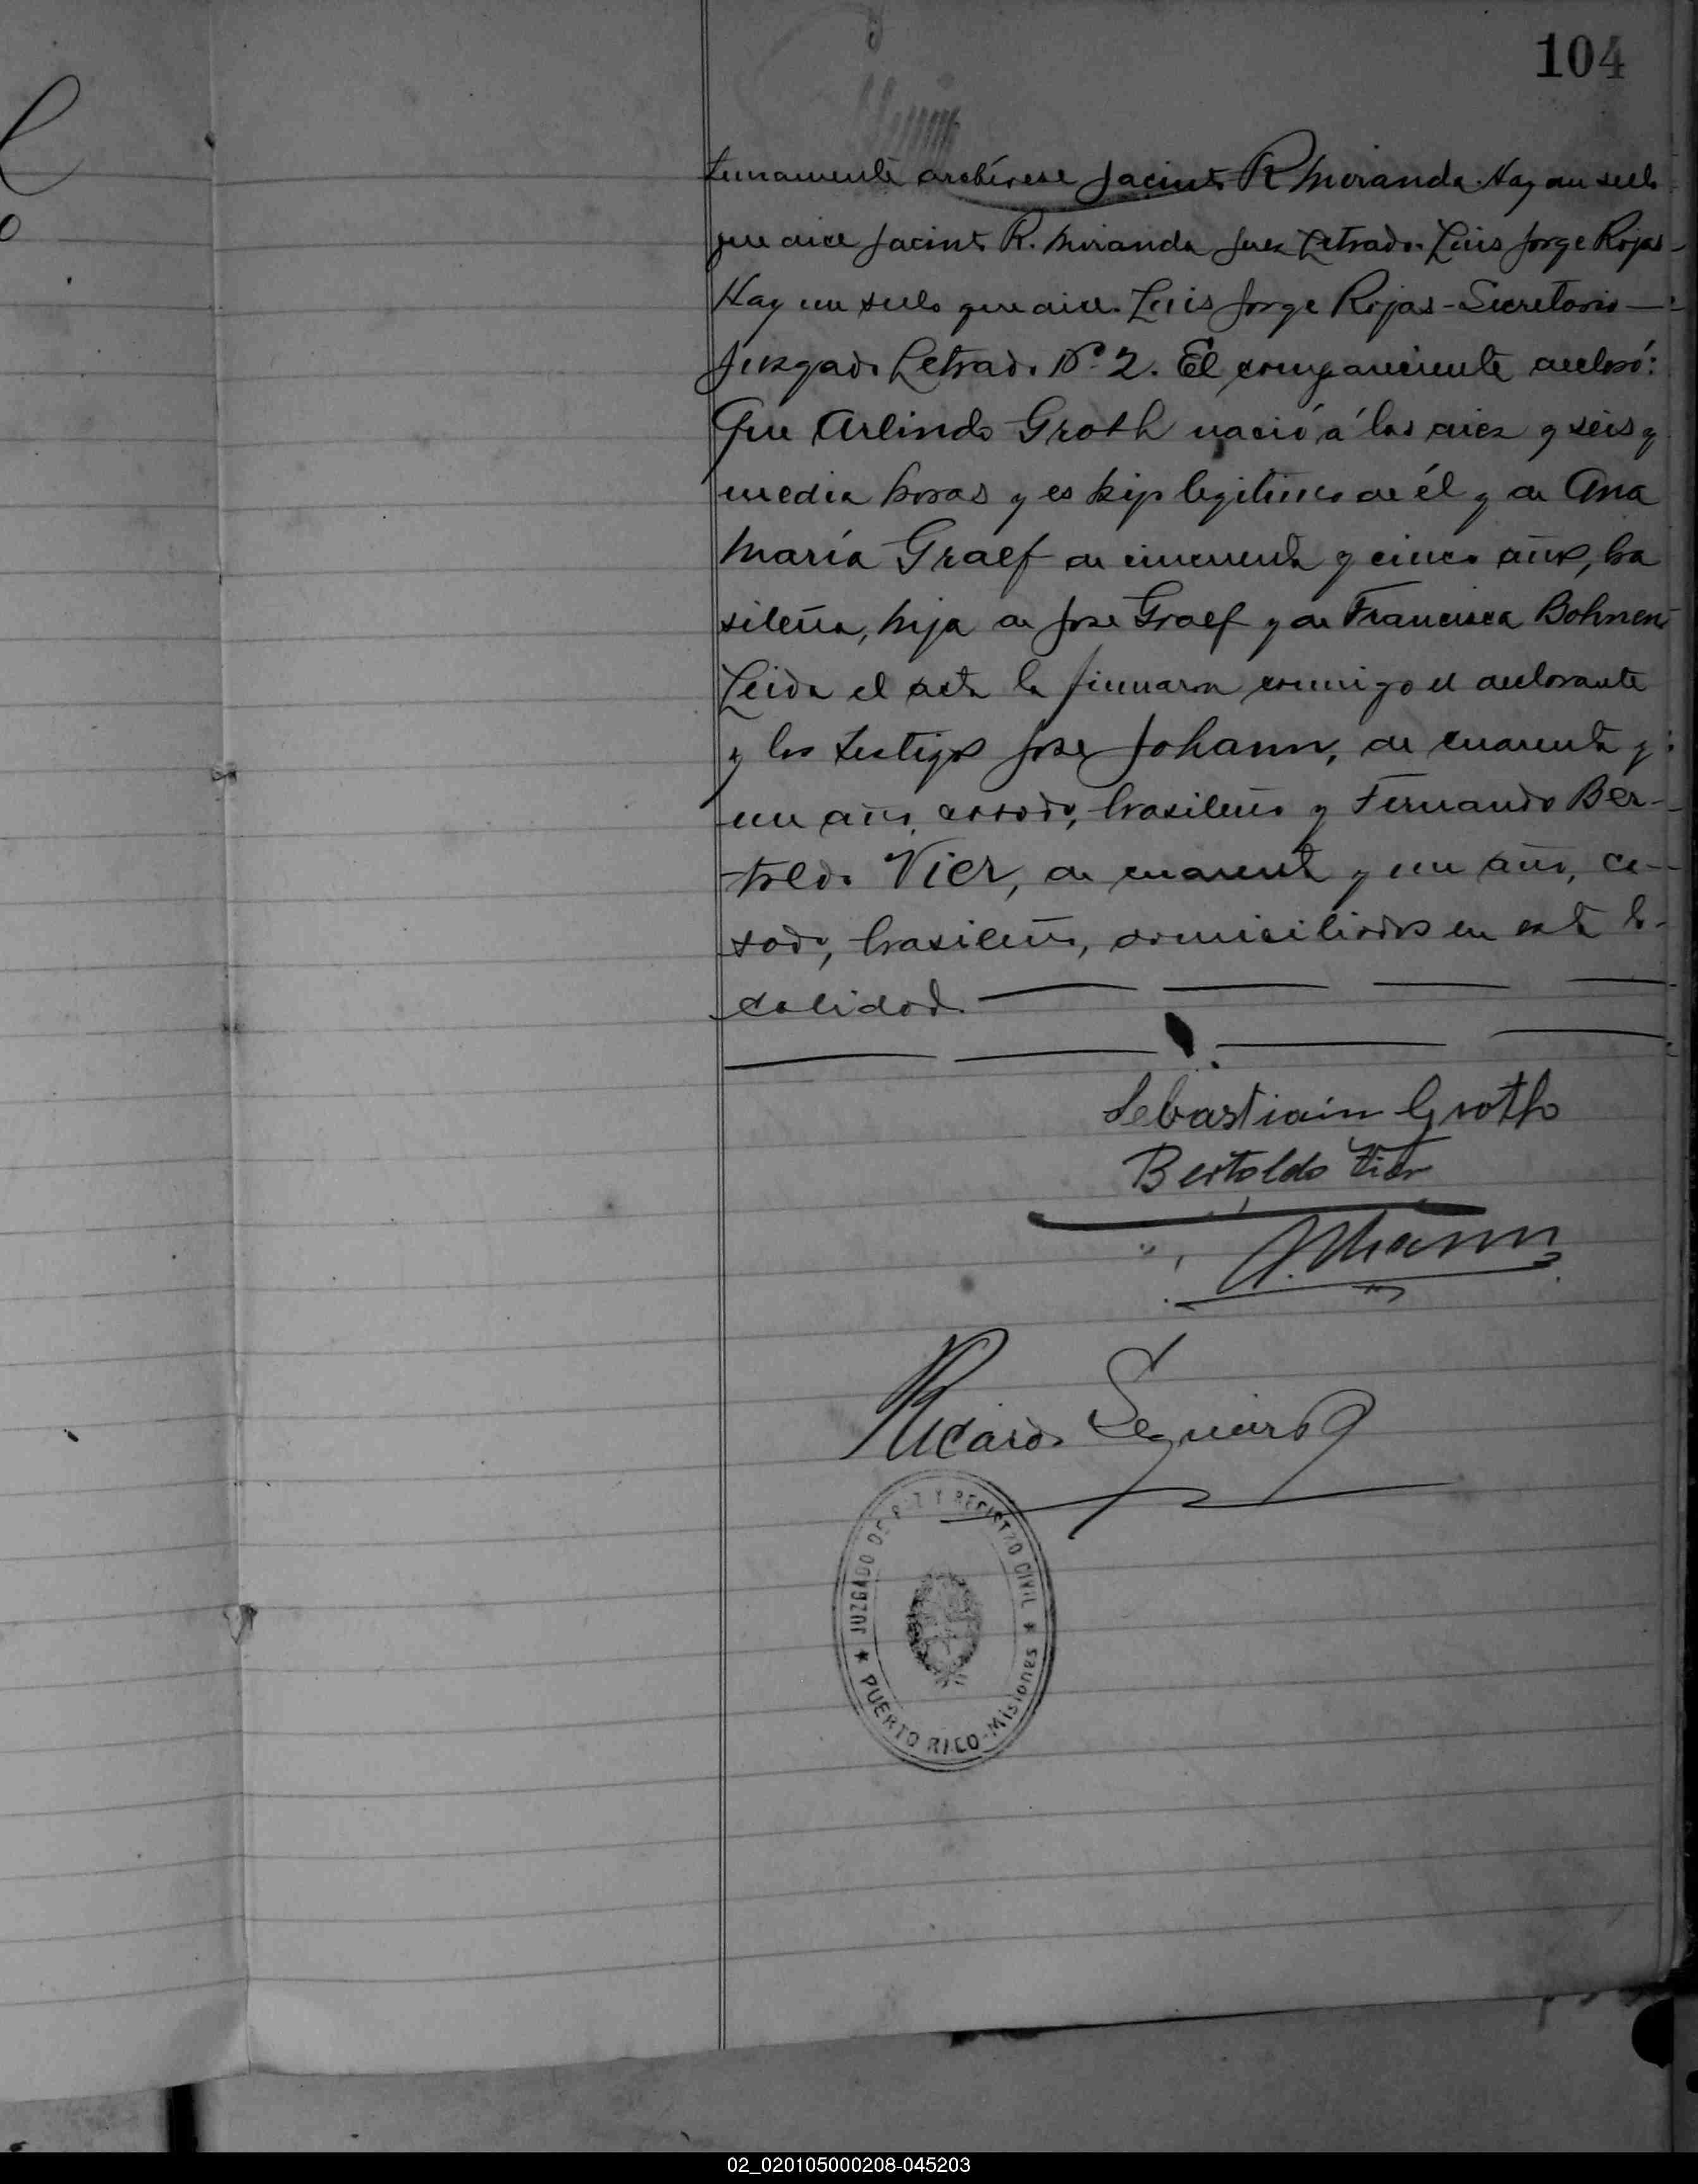 104
tunamente archívese Jacinto R Miranda. Hay un sello
que dice Jacinto R. Miranda Juez Letrado. Luis Jorge Rojas-
Hay un sello que dice. Luis Jorge Rojas-Secretario-
Juzgado Letrado Nº 2. El compareciente declaró:
Que Arlindo Groth nació á las diez y seis y
media horas y es hijo legítimo de él y de Ana
María Graef de cincuenta y cinco años, bra
sileña, hija de José Graef y de Francisca Bohnen
Leida el acta la firmaron conmigo el declarante
y los testigos José Johann, de cuarenta y
un años, casado, brasileño y Fernando Ber-
toldo Vier, de cuarenta y un años, ca-
sado, brasileño, domiciliados en esta lo-
calidad.
Sebastian Groth
Bertoldo Vier
J. Johann
Ricardo Sequeiro
JUZGADO DE PAZ Y REGISTRO CIVIL
★ PUERTO RICO-Misiones ★
02_020105000208-045203